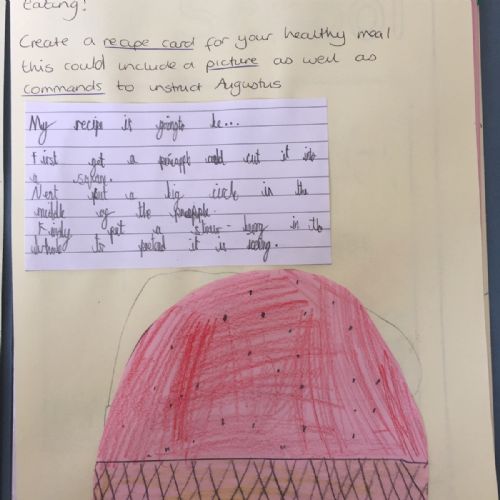 Eating!
Create a recipe card for your healthy meal
this could include a picture as well as
commands to instruct Augustus
My recipe is going to be...
First get a pineapple and cut it into
a square.
Next put a big circle in the
middle of the pineapple.
Kindly put a straw-berry in the
whole to pretend it is